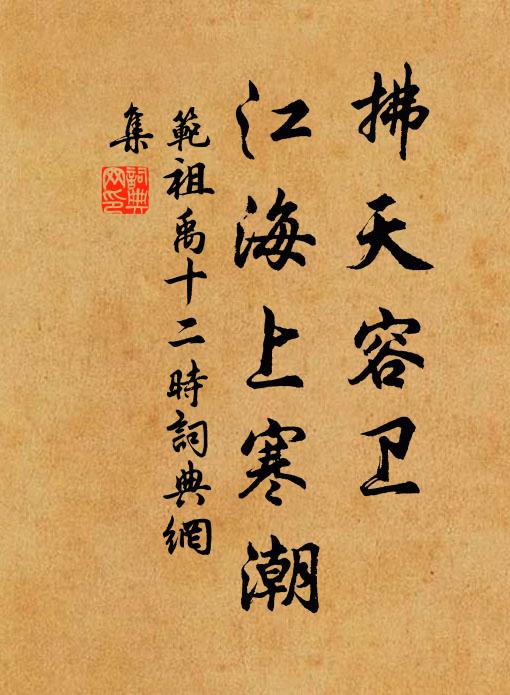 拂天容卫
江海上寒潮
範祖禹十二時詞典網
集
詞典
网印